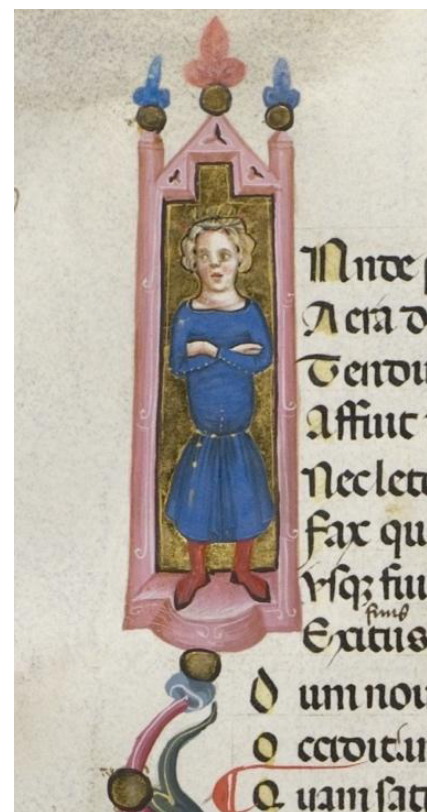 Nnde
Aera d
Tendi
Affuit
Nec leto
Fax qu
vsqꝫ fui
finis
Exitus
D um nou
O ccidit.in
Q uam sat